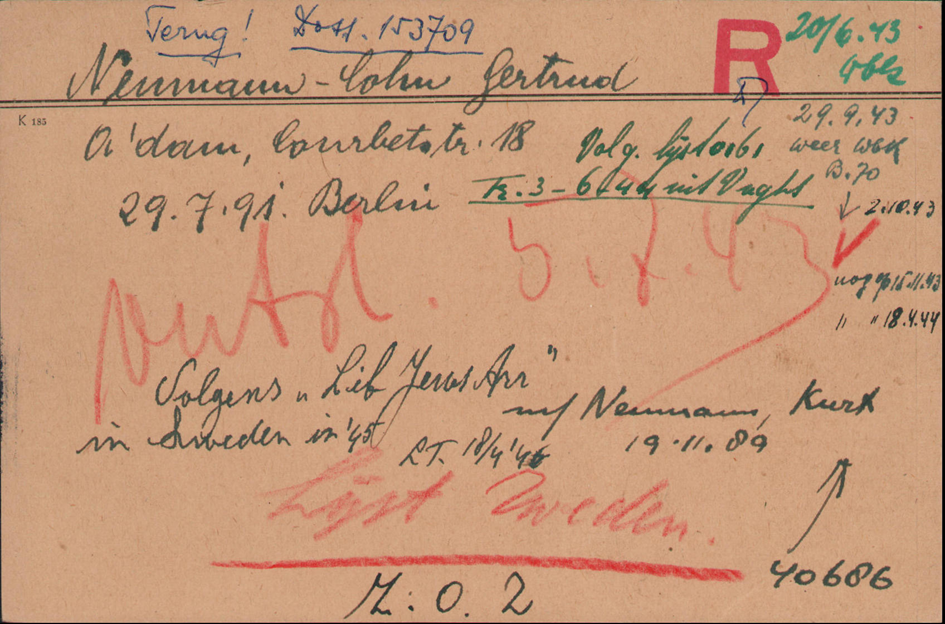 Terug! Doss. 153709
R 20/6.43
Wblk
Neumann-Cohn Gertrud
K 185
29.9.43
A'dam, Courbetstr. 18
Volg. lijst 0161 weer Wbk
B.70
29.7.91. Berlin
Tr. 3-6.44 uit Vught
2.10.43
ontsl. 5.7.43
nog op 15.11.43
" " 18.4.44
Volgens "Lib Jews Arr"
m/ Neumann, Kurt
in Sweden in '45
L.T. 18/4 '46
19.11.89
Lijst Zweden.
40686
Z.O. 2